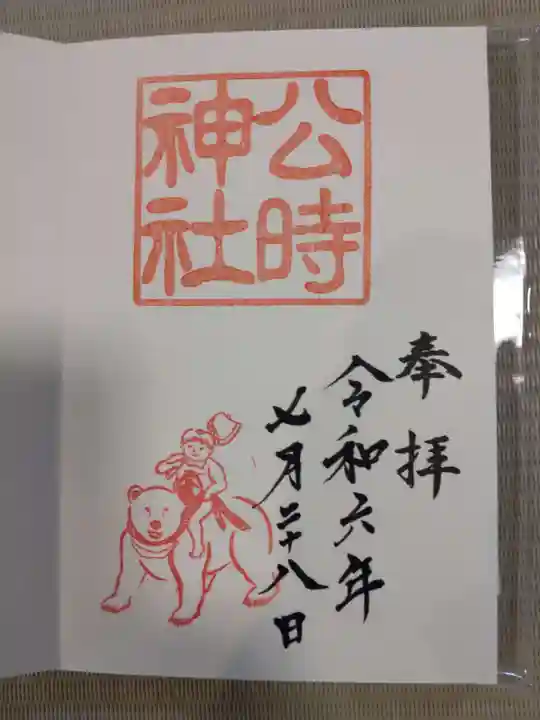 公時
神社
奉拝
令和六年
七月二十八日